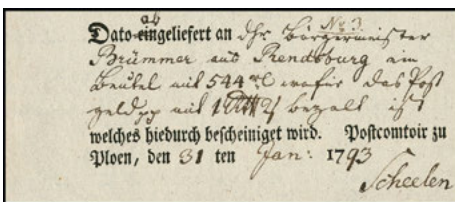 ab
No 3
Dato eingeliefert an Dhr Bürgermeister
Brümmer aus Rendsburg ein
Beutel mit 544 wofür das Post
geld pp mit bezalt ist
welches hiedurch bescheiniget wird. Postcomtoir zu
Ploen, den 31 ten Jan: 1793
Scheelen